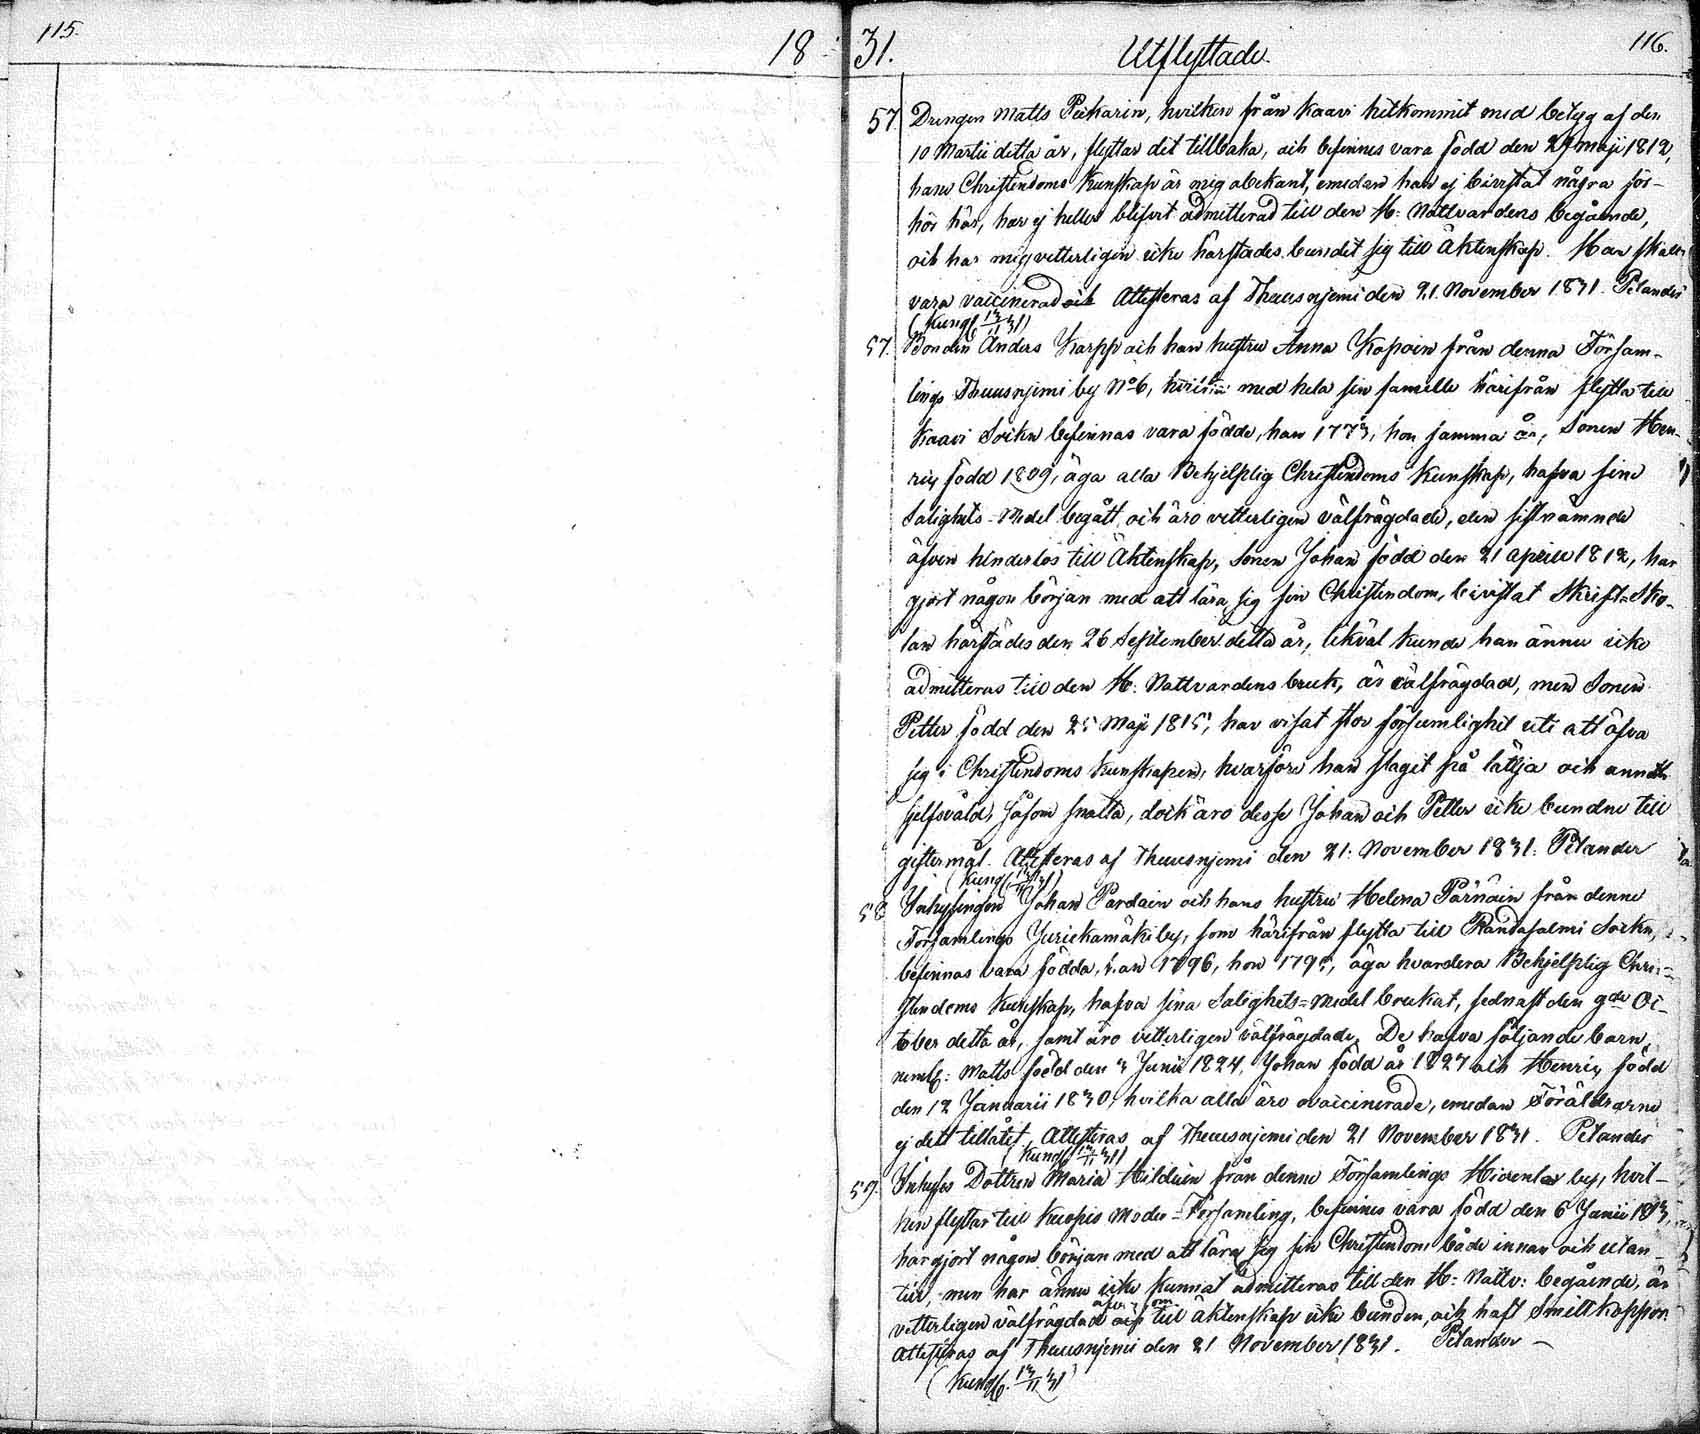 115.
18
31.
Utflyttade.
116.
57. Drengen Matts Pekarin, hvilken från Kaavi hitkommit med betyg af den
10 Martii detta år, flyttar dit tillbaka, och befinnes vara född den 29 Maji 1812,
hans Christendoms Kunskap är mig obekant, emedan han ej bivistat några för-
hör här, har ej heller blifvit admitterad till den H: Nattvardens begående,
och har mig vetterligen icke härstädes bundit sig till Äktenskap. Han skall
vara vaccinerad och Attesteras af Thuusnjemi den 21 November 1831. Pelander
(Kung: 13/11 31)
57. Bonden Anders Karpp och han hustru Anna Kapain från denna Försam-
lings Thuusnjemi by No 6, hvilka med hela sin famille härifrån flytta till
Kaavi Sockn befinnas vara födde, han 1773, hon samma år, Sonen Hen-
ric född 1809, äga alla Behjelplig Christendoms Kunskap, hafva sine
Salighets-Medel begått, och äro vetterligen välfrägdade, den sistnämnde
äfven hinderlös till Äktenskap, Sonen Johan född den 21 Aprill 1812, har
gjort någon början med att lära sig sin Christendom, bivistat Skrift-Sko-
lan härstädes den 26 September detta år, likväl kunde han ännu icke
admitteras till den H: Nattvardens bruk, är välfrägdad, men Sonen
Petter född den 25 Maji 1815, har visat stor försumlighet uti att öfva
sig i Christendoms Kunskapen, hvarföre han slagit på lättja och annat
sjelfsvåld, såsom snatta, dock äro desse Johan och Petter icke bundne till
giftermål. Attesteras af Thuusnjemi den 21 November 1831. Pelander
(Kung: 13/11 31)
58 Inhysingen Johan Pardain och hans hustru Helena Pärnäin från denne
Församlings Jurickamäki by, som härifrån flytta till Randasalmi Sockn,
befinnas vara födda, han 1796, hon 1795, äga hvardera Behjelplig Chri-
stendoms Kunskap, hafva sina Salighets-Medel brukat, sednast den 9de Oc-
tober detta år, samt äro vetterligen välfrägdade. De hafva följande barn,
neml: Matts född den 3 Junii 1824, Johan född år 1827 och Henric född
den 12 Januarii 1830, hvilka alla äro ovaccinerade, emedan Föräldrarne
ej dett tillåtit, Attesteras af Thuusnjemi den 21 November 1831. Pelander
(Kung: 13/11 31)
59. Inhyses Dottren Maria Hilduin från denne Församlings by, hvil-
ken flyttar till Kuopio Moder-Församling, befinnes vara född den 6 Junii 1813,
har gjort någon början med att lära sig sin Christendom både innan och utan-
till, men har ännu icke kunnat admitteras till den H: Nattv: begående, är
vetterligen välfrägdad till äktenskap icke bunden, och haft Smittkoppor.
Attesteras af Thuusnjemi den 21 November 1831. Pelander
(Kung: 13/11 31)